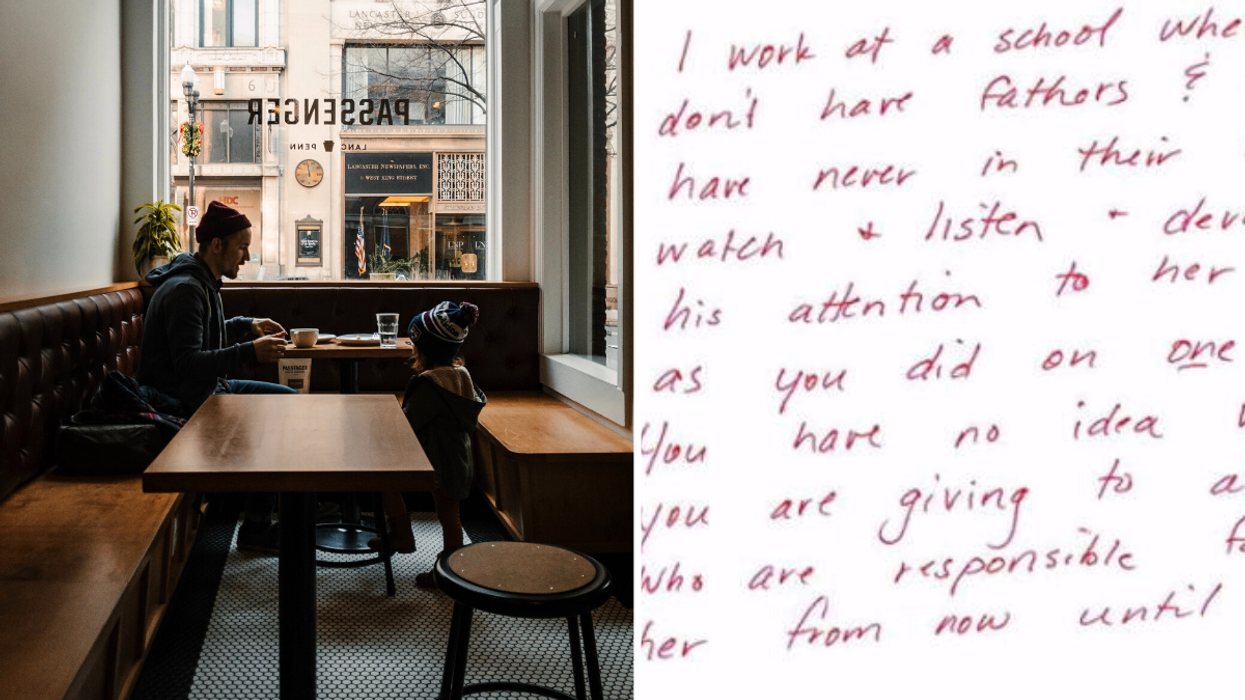 PASSENGER
LANC PENN
LANCASTER NEWSPAPERS, INC.
8 WEST KING STREET
LNP
I work at a school whe
don't have fathors &
have never in their
watch + listen + dev
his attention to her
as you did on one
You have no idea
you are giving to a
who are responsible fo
her from now until